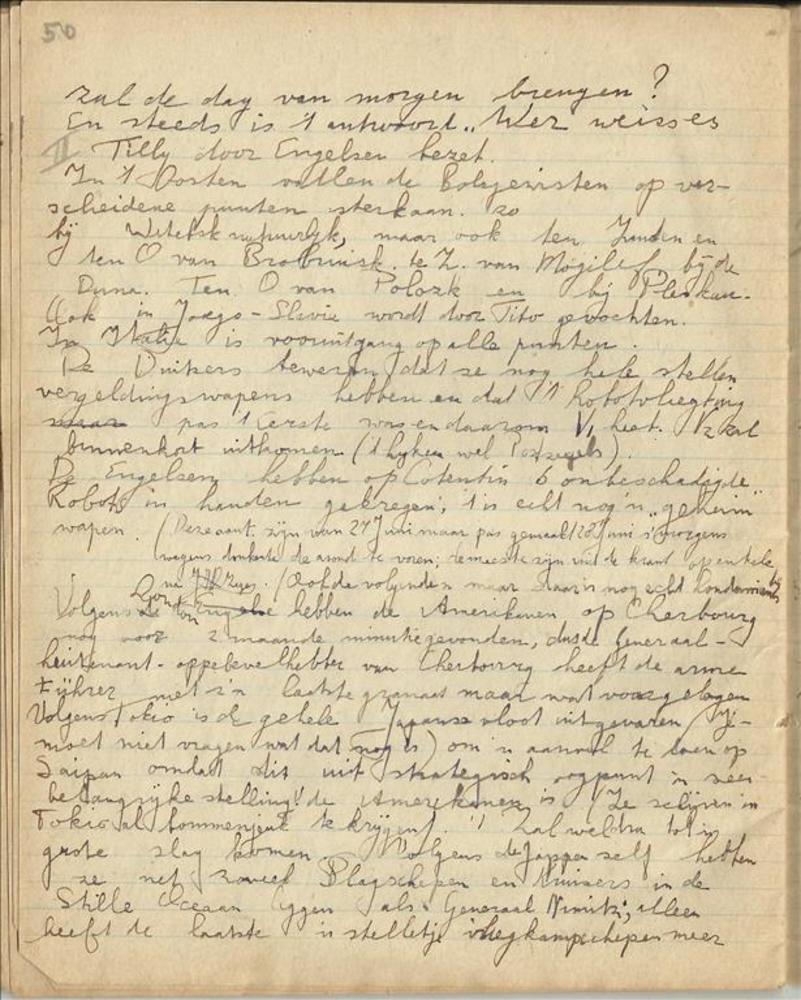 50
zal de dag van morgen brengen?
En steeds is 't antwoord „Wer weisses
II Tilly door Engelsen bezet.
In 't Oosten vallen de Bolsjewisten op ver-
scheidene punten sterk aan. zo
bij Witebsk natuurlijk, maar ook ten Zuiden en
ten O van Brobruisk. te Z. van Mogilef bij de
Duna. Ten O van Polozk en bij Pleskau.
Ook in Joego-Slavie wordt door Tito gevochten.
In Italie is vooruitgang op alle punten.
De Duitsers beweren dat ze nog hele stellen
vergeldingswapens hebben en dat 't Robotvliegtuig
pas 't eerste was en daarom V1 heet. V2 zal
binnenkort uitkomen ('t lijken wel Postzegels).
De Engelsen hebben op Cotentin 6 onbeschadigde
Robots in handen gekregen, 't is echt nog 'n „geheim"
wapen. (Deze aant. zijn van 27 Juni maar pas gemaakt 28 Juni 's morgens
wegens donkerte de avond te voren; de meeste zijn uit de krant op enkele
na. (Ook de volgenden maar daar is nog echt
Volgens London hebben de Amerikanen op Cherbourg
nog voor 2 maande munitie gevonden, dus de Generaal-
luitenant-oppebevelhebber van Cherbourg heeft de arme
Führer met z'n laatste granaat maar wat voorgelogen
Volgens Tokio is de gehele Japanse vloot uitgevaren (Je
moet niet vragen wat dat nog is) om 'n aanval te doen op
Saipan omdat dit uit strategisch oogpunt 'n zeer
belangrijke stelling de Amerikanen is (Ze in
Tokio al bommenjeuk te krijgen). 't Zal weldra tot 'n
grote slag komen. Volgens de Jappen self hebben
ze net zoveel Slagschepen en Kruisers in de
Stille Oceaan liggen als Generaal Nimitz; alleen
heeft de laatste 'n stelletje vliegkampschepen meer